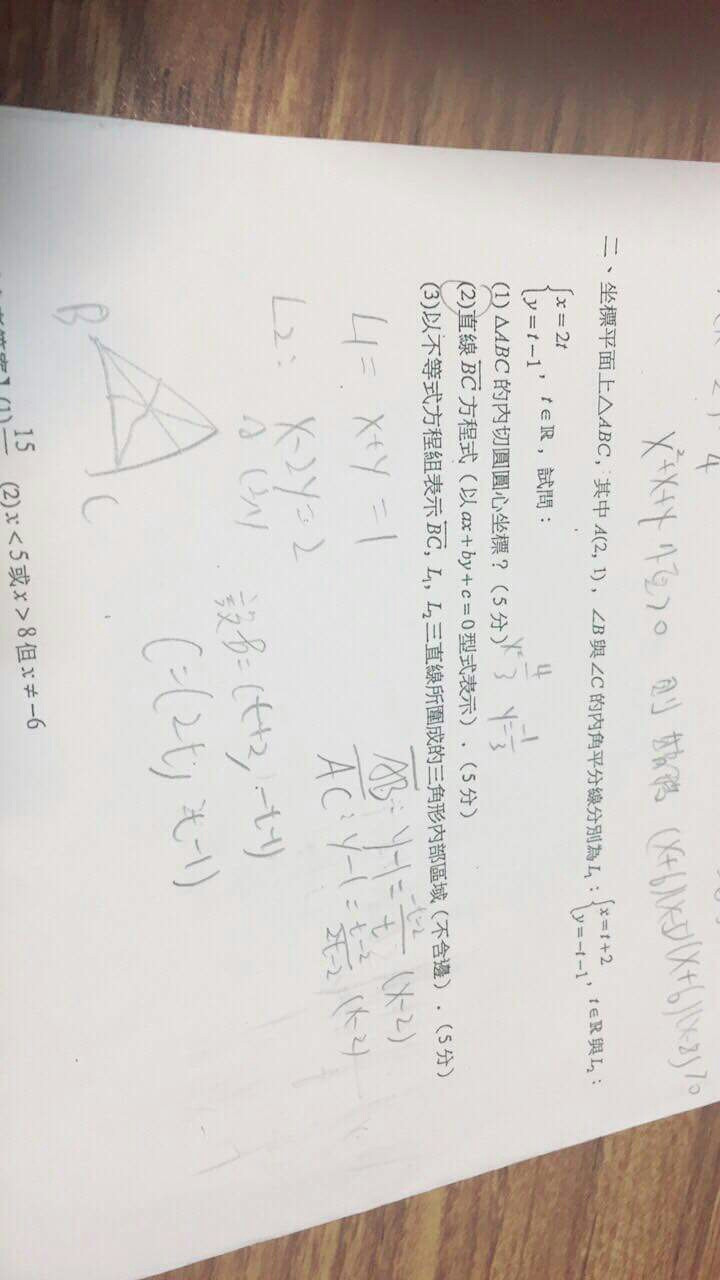 x²+x+y 恆>0 則 (x+6)(x-5)(x+6)(x-8)>0
二、坐標平面上△ABC，其中 A(2, 1)，∠B 與 ∠C 的內角平分線分別為 L₁：{x=t+2 y=-t-1，t∈ℝ 與 L₂：
{x=2t y=t-1，t∈ℝ，試問：
(1) △ABC 的內切圓圓心坐標？(5 分) x=4/3 y=-1/3
(2) 直線 BC 方程式 (以 ax+by+c=0 型式表示)．(5 分)
(3) 以不等式方程組表示 BC，L₁，L₂ 三直線所圍成的三角形內部區域 (不含邊)．(5 分)
L1= x+y=1
AB: y-1=-t-2/t (x-2)
L2: x-2y=2
AC: y-1=t-2/2t-2 (x-2)
A (2,1)
設B=(t+2, -t-1)
C=(2t, t-1)
B
C
15 (2) x<5或x>8但x≠-6